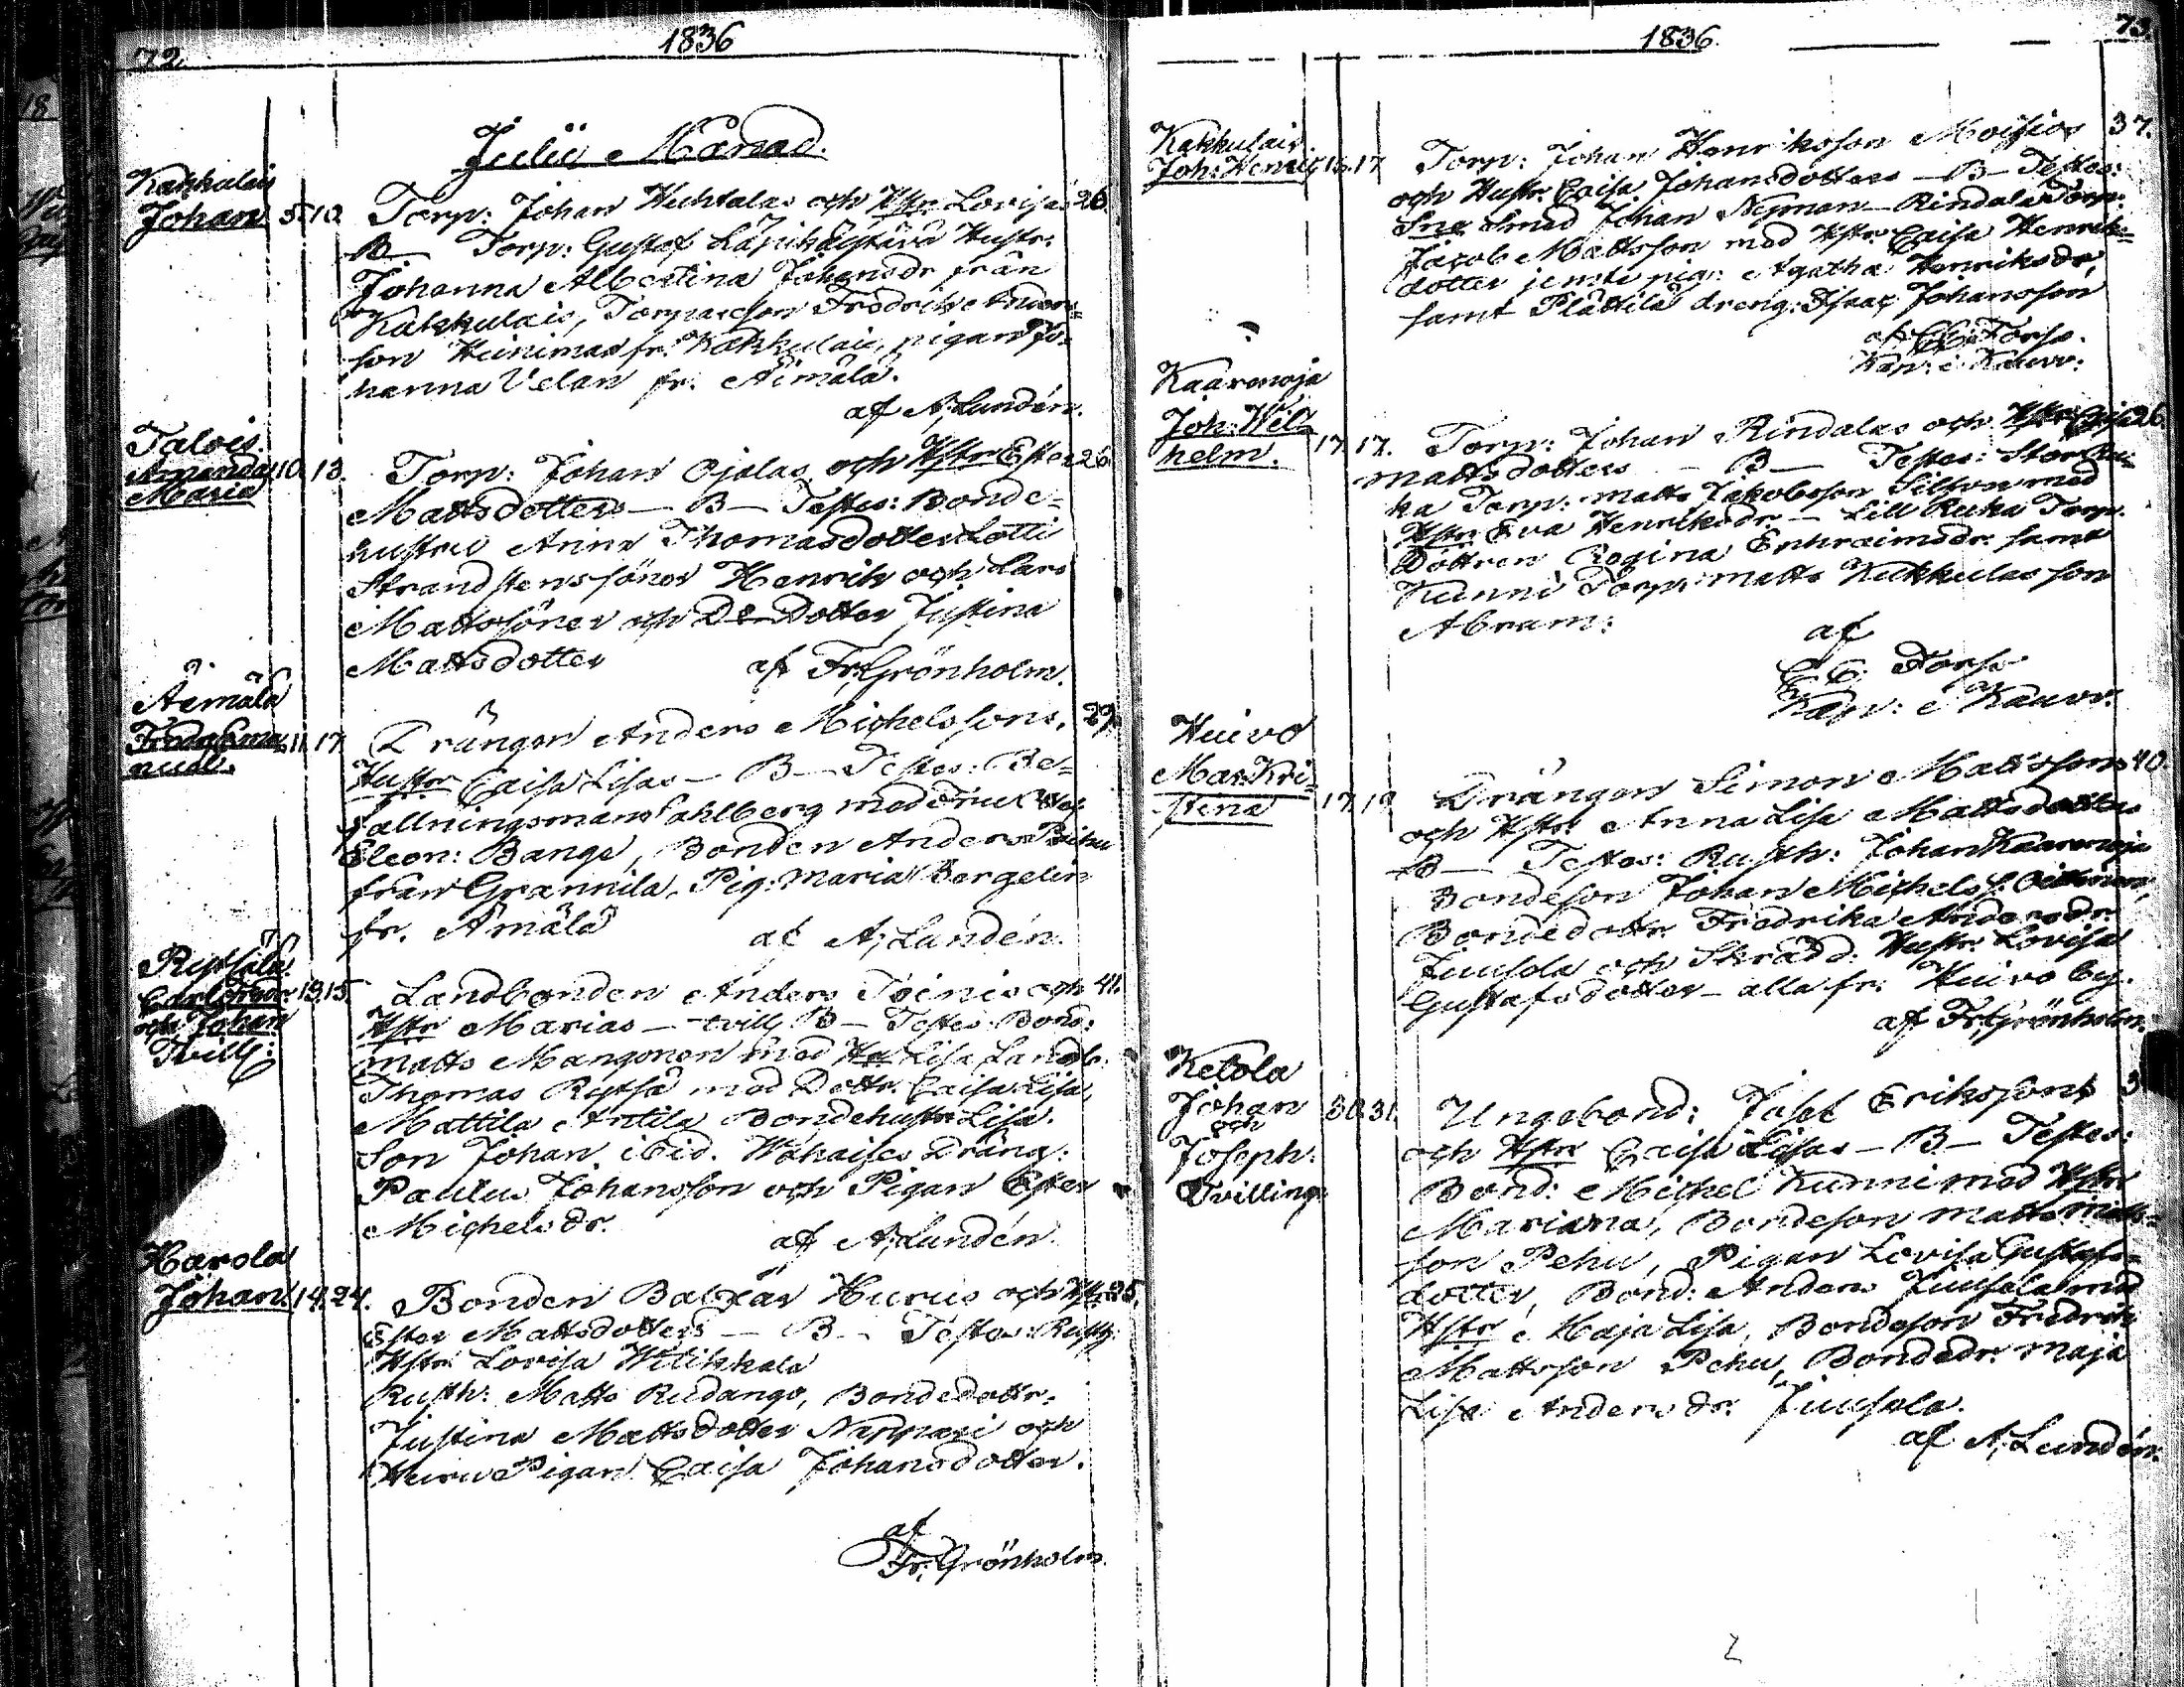 72.
1836
Julii Månad.
Kakkulais
Johan 5. 10. Torp: Johan Huhtalas och Hstr Lovisas 26.
B— Torp: Gustaf Hustr:
Johanna Albertina Johansdr från
Kakkulais, Torpareson Fredrik Anders=
son Heinimaa fr. Kakkulais, pigan Jo=
hanna Velan fr. Äimälä.
af A; Lundén.
Talois.
Amanda 10. 13. Torp: Johan Ojalas och Hstr Esters 26.
Maria
Mattsdotters — B — Testes: Bonde=
hustru Anna Thomasdotter Lotti
Strandstens söner Henrik och Lars
Mattssöner och D:o Dotter Justina
Mattsdotter af Fr; Grönholm.
Äimälä
Fredr. Ema= 11. 17. Drängen Anders Michelssons, 29.
nuel.
Hustr Caisa Lisas — B — Testes: Be=
fallningsman Sahlberg med Fru
Eleon: Bange, Bonden Anders
från Grannila, Pig: Maria Bergelin
fr. Ämälä af A; Lundén.
Ryssälä
Carl Fredr. 13. 15. Landbonden Anders Toinis och 41.
och Johan
Tvill:
Hstr Marias — tvill: B — Testes: Bond:
Matts Mangonen med Ha Lisa, Landb:
Thomas Ryssä med Dottr. Caisa Lisa,
Mattila Anttila Bondehustr Lisa.
Son Johan ibid. Wähaises Dräng:
Paulus Johansson och Pigan Ester
Michelsdr. af A; Lundén.
Harola
Johan 14. 24. Bonden Balzar Hurus och Hstr 25.
Ester Mattsdotters — B — Testes: Rusth:
Hstr Lovisa Wilikkala
Rusth: Matts Rudango, Bondedottr.
Justina Mattsdotter Nappari och
Huru Pigan Caisa Johansdotter.
af
Fr; Grönholm.
1836.
73.
Kakkulais.
Joh: Henrik 15. 17. Torp: Johan Henriksson Moisios 37.
och Hustr. Caisa Johansdotters — B — Testes:
Smed Johan Nyman — Rindala Torp:
Jacob Mattsson med Hstr Caisa Henriks=
dotter jemte pig: Agatha Henriksdr,
samt Plättilä dreng: Isaac Johansson
af C. C. Forss.
Kap: i Kauv:
Kaarenoja
Joh: Wil=
helm. 17. 17. Torp: Johan Rindalas och Hstr 26.
Mattsdotters — B — Testes: Stor Ru=
ka Torp: Matts Jakobsson Sillson med
Hstr Eva Henriksdr. — Lill Ruka Torp.
Dottren Regina Enhraimsdr. samt
Kunni Torp: Matts Kukkulas son
Abram:
af
C. C. Forss
Kap: i Kauv:
Huivo
Mar: Kri=
stina 17. 19. Drängen Simon Mattssons 40.
och Hstr. Anna Lisa Mattsdotters
B — Testes: Rusth: Johan Kaarenoja
Bondeson Johan Michelss.
Bondedottr. Fredrika Andersdr.
Juusola och Skrädd: Hustr. Lovisa
Gustafsdotter — alla fr. Huivo by.
af Fr; Grönholm.
Ketola
Johan 30. 31. Ungebond: Josef Erikssons
och
Joseph.
Tvilling:
och Hstr Caisa Lisas — B — Testes:
Bond: Michel Kunni med Hstr
Marianna, Bondeson Matts Matts=
son Pehu, Pigan Lovisa Gustafs=
dotter, Bond: Anders Juusola med
Hstr Maja Lisa, Bondeson Fredrik
Mattsson Pehu, Bondedr. Maja
Lisa Andersdr. Juusola.
af A; Lundén.